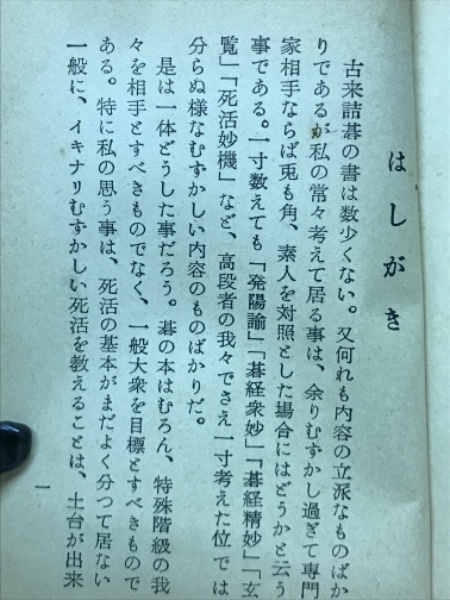 はしがき
古来詰碁の書は数少くない。又何れも内容の立派なものばか
りであるが私の常々考えて居る事は、余りむずかし過ぎて専門
家相手ならば兎も角、素人を対照とした場合にはどうかと云う
事である。一寸数えても「発陽諭」「碁経衆妙」「碁経精妙」「玄
覧」「死活妙機」など、高段者の我々でさえ一寸考えた位では
分らぬ様なむずかしい内容のものばかりだ。
是は一体どうした事だろう。碁の本はむろん、特殊階級の我
々を相手とすべきものでなく、一般大衆を目標とすべきもので
ある。特に私の思う事は、死活の基本がまだよく分つて居ない
一般に、イキナリむずかしい死活を教えることは、土台が出来
一